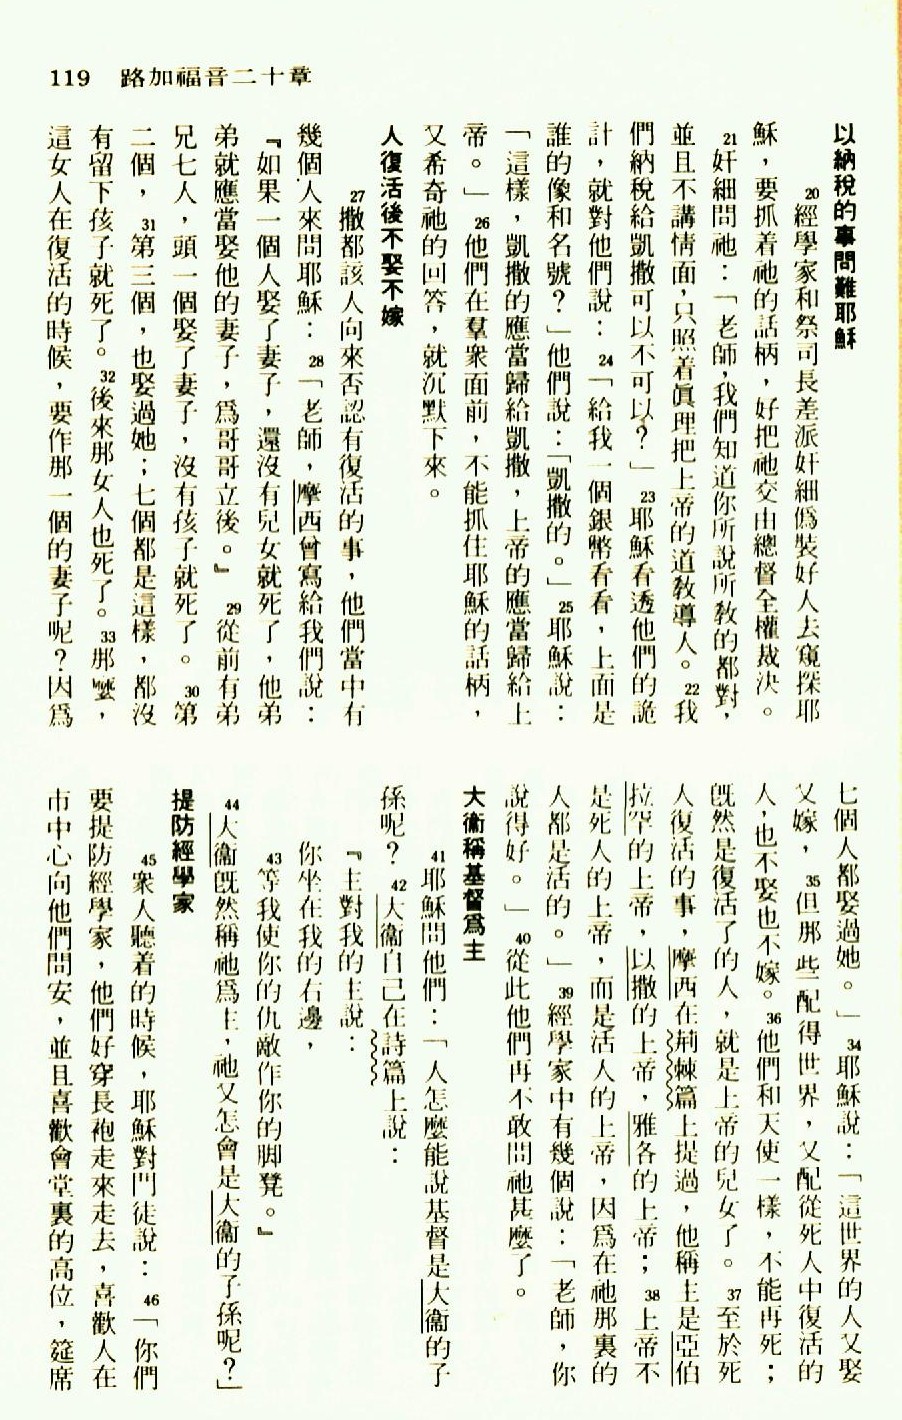 119 路加福音二十章
以納稅的事問難耶穌
20經學家和祭司長差派奸細僞裝好人去窺探耶
穌，要抓着祂的話柄，好把祂交由總督全權裁決。
21奸細問祂：「老師，我們知道你所說所教的都對，
並且不講情面，只照着眞理把上帝的道教導人。22我
們納稅給凱撒可以不可以？」23耶穌看透他們的詭
計，就對他們說：24「給我一個銀幣看看，上面是
誰的像和名號？」他們說：「凱撒的。」25耶穌說：
「這樣，凱撒的應當歸給凱撒，上帝的應當歸給上
帝。」26他們在羣衆面前，不能抓住耶穌的話柄，
又希奇祂的回答，就沉默下來。
人復活後不娶不嫁
27撒都該人向來否認有復活的事，他們當中有
幾個人來問耶穌：28「老師，摩西曾寫給我們說：
『如果一個人娶了妻子，還沒有兒女就死了，他弟
弟就應當娶他的妻子，爲哥哥立後。』29從前有弟
兄七人，頭一個娶了妻子，沒有孩子就死了。30第
二個，31第三個，也娶過她；七個都是這樣，都沒
有留下孩子就死了。32後來那女人也死了。33那麼，
這女人在復活的時候，要作那一個的妻子呢？因爲
七個人都娶過她。」34耶穌說：「這世界的人又娶
又嫁，35但那些配得世界，又配從死人中復活的
人，也不娶也不嫁。36他們和天使一樣，不能再死；
旣然是復活了的人，就是上帝的兒女了。37至於死
人復活的事，摩西在荊棘篇上提過，他稱主是亞伯
拉罕的上帝，以撒的上帝，雅各的上帝；38上帝不
是死人的上帝，而是活人的上帝，因爲在祂那裏的
人都是活的。」39經學家中有幾個說：「老師，你
說得好。」40從此他們再不敢問祂甚麼了。
大衞稱基督爲主
41耶穌問他們：「人怎麼能說基督是大衞的子
孫呢？42大衞自己在詩篇上說：
『主對我的主說：
你坐在我的右邊，
43等我使你的仇敵作你的脚凳。』
44大衞旣然稱祂爲主，祂又怎會是大衞的子孫呢？」
提防經學家
45衆人聽着的時候，耶穌對門徒說：46「你們
要提防經學家，他們好穿長袍走來走去，喜歡人在
市中心向他們問安，並且喜歡會堂裏的高位，筵席